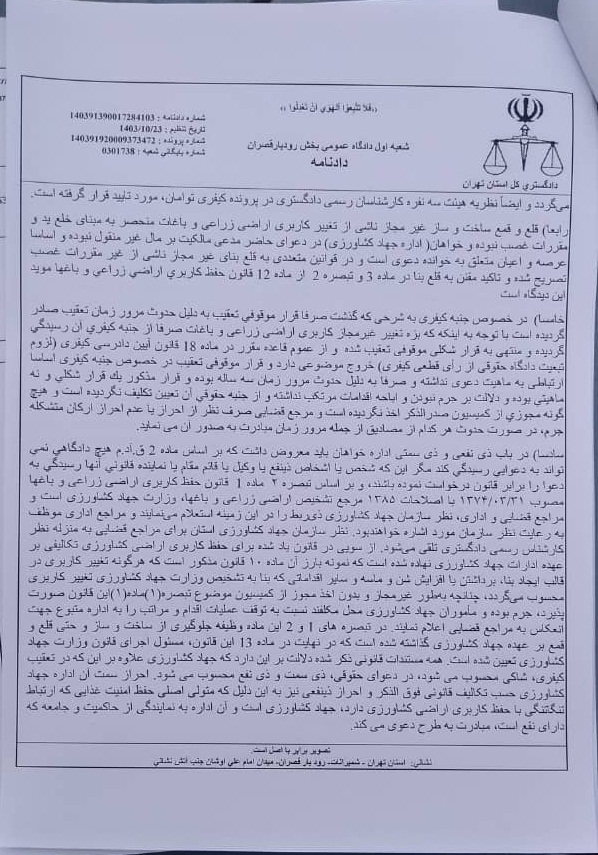 «فلا تتبعوا الهوي ان تعدلوا»
شماره دادنامه : 140391390017284103
تاریخ تنظیم : 1403/10/23
شماره پرونده : 140391920009373472
شماره بایگانی شعبه : 0301738
شعبه اول دادگاه عمومی بخش رودبارقصران
دادنامه
دادگستري کل استان تهران
می‌گردد و ایضاً نظریه هیئت سه نفره کارشناسان رسمی دادگستری در پرونده کیفری توامان، مورد تایید قرار گرفته است.
رابعا) قلع و قمع ساخت و ساز غیر مجاز ناشی از تغییر کاربری اراضی زراعی و باغات منحصر به مبنای خلع ید و
مقررات غصب نبوده و خواهان( اداره جهاد کشاورزی) در دعوای حاضر مدعی مالکیت بر مال غیر منقول نبوده و اساسا
عرصه و اعیان متعلق به خوانده دعوی است و در قوانین متعددی به قلع بنای غیر مجاز ناشی از غیر مقررات غصب
تصریح شده و تاکید مقنن به قلع بنا در ماده 3 و تبصره 2 از ماده 12 قانون حفظ کاربري اراضي زراعي و باغها موید
این دیدگاه است
خامسا) در خصوص جنبه کیفری به شرحی که گذشت صرفا قرار موقوفی تعقیب به دلیل حدوث مرور زمان تعقیب صادر
گردیده است با توجه به اینکه که بزه تغییر غیرمجاز کاربری اراضی زراعی و باغات صرفا از جنبه کیفري آن رسیدگي
گردیده و منتهی به قرار شکلی موقوفی تعقیب شده و از عموم قاعده مقرر در ماده 18 قانون آیین دادرسی کیفری (لزوم
تبعیت دادگاه حقوقی از رأی قطعی کیفری) خروج موضوعی دارد و قرار موقوفی تعقیب در خصوص جنبه کیفری اساسا
ارتباطی به ماهیت دعوی نداشته و صرفا به دلیل حدوث مرور زمان سه ساله بوده و قرار مذکور یك قرار شکلي و نه
ماهیتی بوده و دلالت بر جرم نبودن و اباحه اقدامات مرتکب نداشته و از جنبه حقوقي آن تعیین تکلیف نگردیده است و هیچ
گونه مجوزي از کمیسیون صدرالذکر اخذ نگردیده است و مرجع قضایی صرف نظر از احراز یا عدم احراز ارکان متشکله
جرم، در صورت حدوث هر کدام از مصادیق از جمله مرور زمان مبادرت به صدور آن می نماید.
سادسا) در باب ذی نفعی و ذی سمتی اداره خواهان باید معروض داشت که بر اساس ماده 2 ق.ا.د.م هیچ دادگاهي نمي
تواند به دعوایی رسیدگی کند مگر این که شخص یا اشخاص ذینفع یا وکیل یا قائم مقام یا نماینده قانوني آنها رسیدگي به
دعوا را برابر قانون درخواست نموده باشند، و بر اساس تبصره ۲ ماده 1 قانون حفظ کاربری اراضی زراعی و باغها
مصوب ۱۳۷۴/۰۳/۳۱ با اصلاحات ۱۳۸۵ مرجع تشخیص اراضی زراعی و باغها، وزارت جهاد کشاورزی است و
مراجع قضایی و اداری، نظر سازمان جهاد کشاورزی ذی‌ربط را در این زمینه استعلام می‌نمایند و مراجع اداری موظف
به رعایت نظر سازمان مورد اشاره خواهندبود. نظر سازمان جهاد کشاورزی استان برای مراجع قضایی به منزله نظر
کارشناس رسمی دادگستری تلقی می‌شود. از سویی در قانون یاد شده برای حفظ کاربری اراضی کشاورزی تکالیفی بر
عهده ادارات جهاد کشاورزی نهاده شده است که نمونه بارز آن ماده ۱۰ قانون مذکور است که هرگونه تغییر کاربری در
قالب ایجاد بنا، برداشتن یا افزایش شن و ماسه و سایر اقداماتی که بنا به تشخیص وزارت جهاد کشاورزی تغییر کاربری
محسوب می‌گردد، چنانچه به‌طور غیرمجاز و بدون اخذ مجوز از کمیسیون موضوع تبصره(۱)ماده(۱)این قانون صورت
پذیرد، جرم بوده و مأموران جهاد کشاورزی محل مکلفند نسبت به توقف عملیات اقدام و مراتب را به اداره متبوع جهت
انعکاس به مراجع قضایی اعلام نمایند. در تبصره های 1 و 2 این ماده وظیفه جلوگیری از ساخت و ساز و حتی قلع و
قمع بر عهده جهاد کشاورزی گذاشته شده است که در نهایت در ماده 13 این قانون، مسئول اجرای قانون وزارت جهاد
کشاورزی تعیین شده است. همه مستندات قانونی ذکر شده دلالت بر این دارد که جهاد کشاورزی علاوه بر این که در تعقیب
کیفری، شاکی محسوب می شود، در دعوای حقوقی، ذی سمت و ذی نفع محسوب می شود. احراز سمت آن اداره جهاد
کشاورزی حسب تکالیف قانونی فوق الذکر و احراز ذینفعی نیز به این دلیل که متولی اصلی حفظ امنیت غذایی که ارتباط
تنگاتنگی با حفظ کاربری اراضی کشاورزی دارد، جهاد کشاورزی است و آن اداره به نمایندگی از حاکمیت و جامعه که
دارای نفع است، مبادرت به طرح دعوی می کند.
تصویر برابر با اصل است.
نشانی: استان تهران - شمیرانات- رود بار قصران، میدان امام علی اوشان جنب آتش نشانی